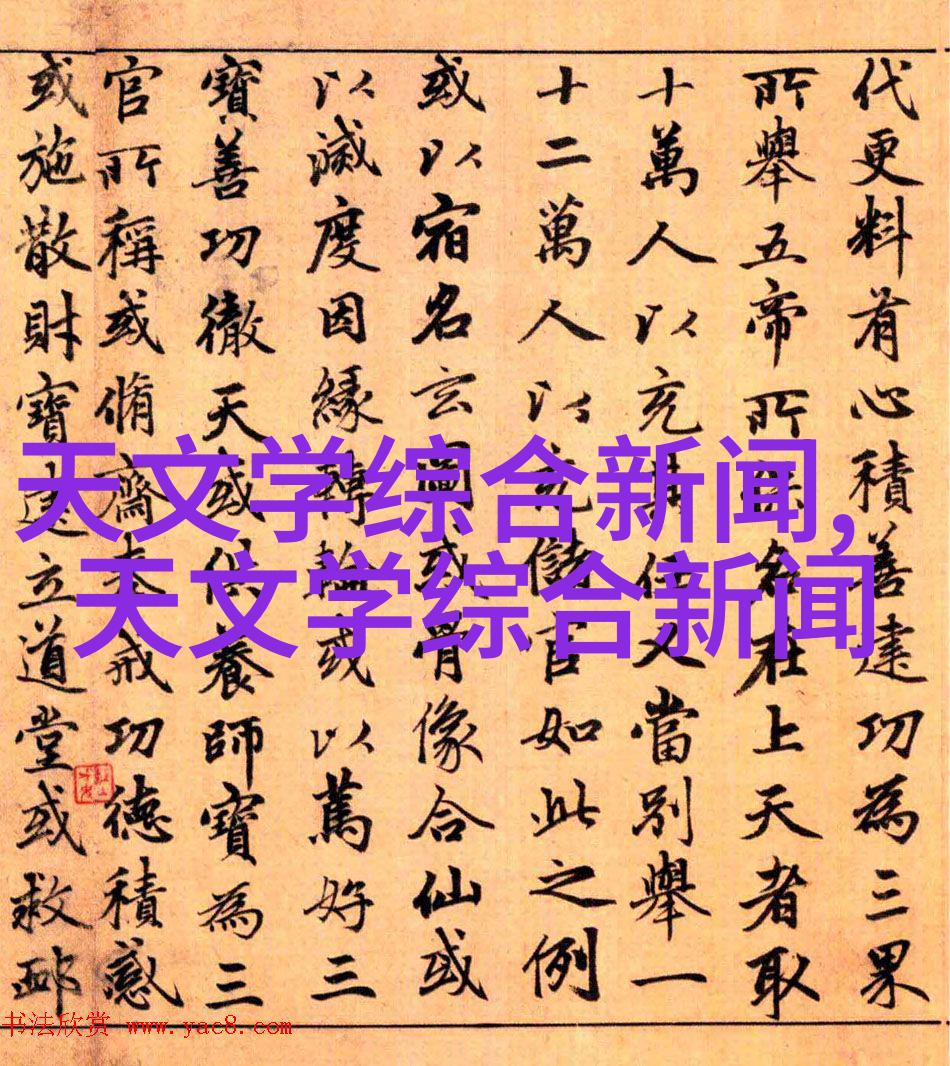 代更料有心積善建功為三果
所舉五帝所名在上天者取
十萬人以充其任又當別舉一
十二萬人以充儲官如此之例
或以宿名玄圖或骨像合仙或
以滅度因緣轉輪或以篤好三
寶善功徹天或供養師寶為三
官所稱或脩齋奉戒功德積感
或施散財寶建立道堂或救卹
天文学综合新闻,
天文学综合新闻
书法欣赏 www.yac8.com